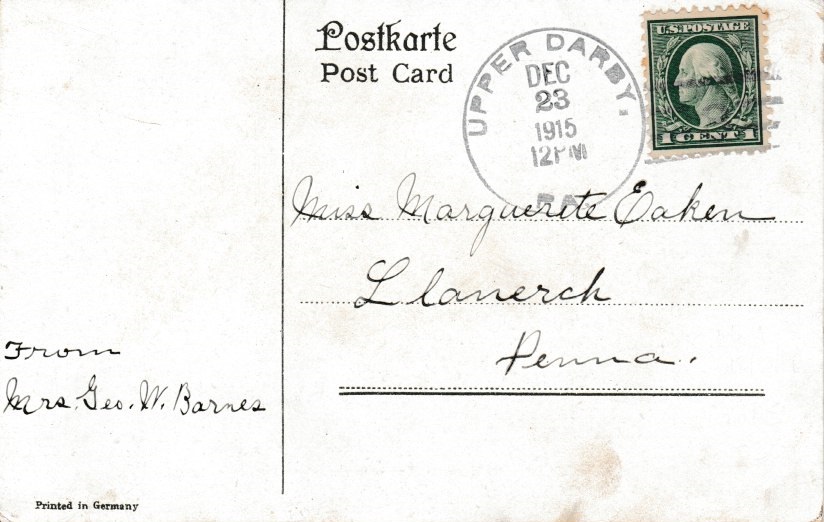 Postkarte
Post Card
UPPER DARBY,
DEC
23
1915
12PM
PA.
U.S. POSTAGE
1 CENT 1
Miss Marguerete Eaken
Llanerch
Penna.
From
Mrs. Geo. W. Barnes
Printed in Germany